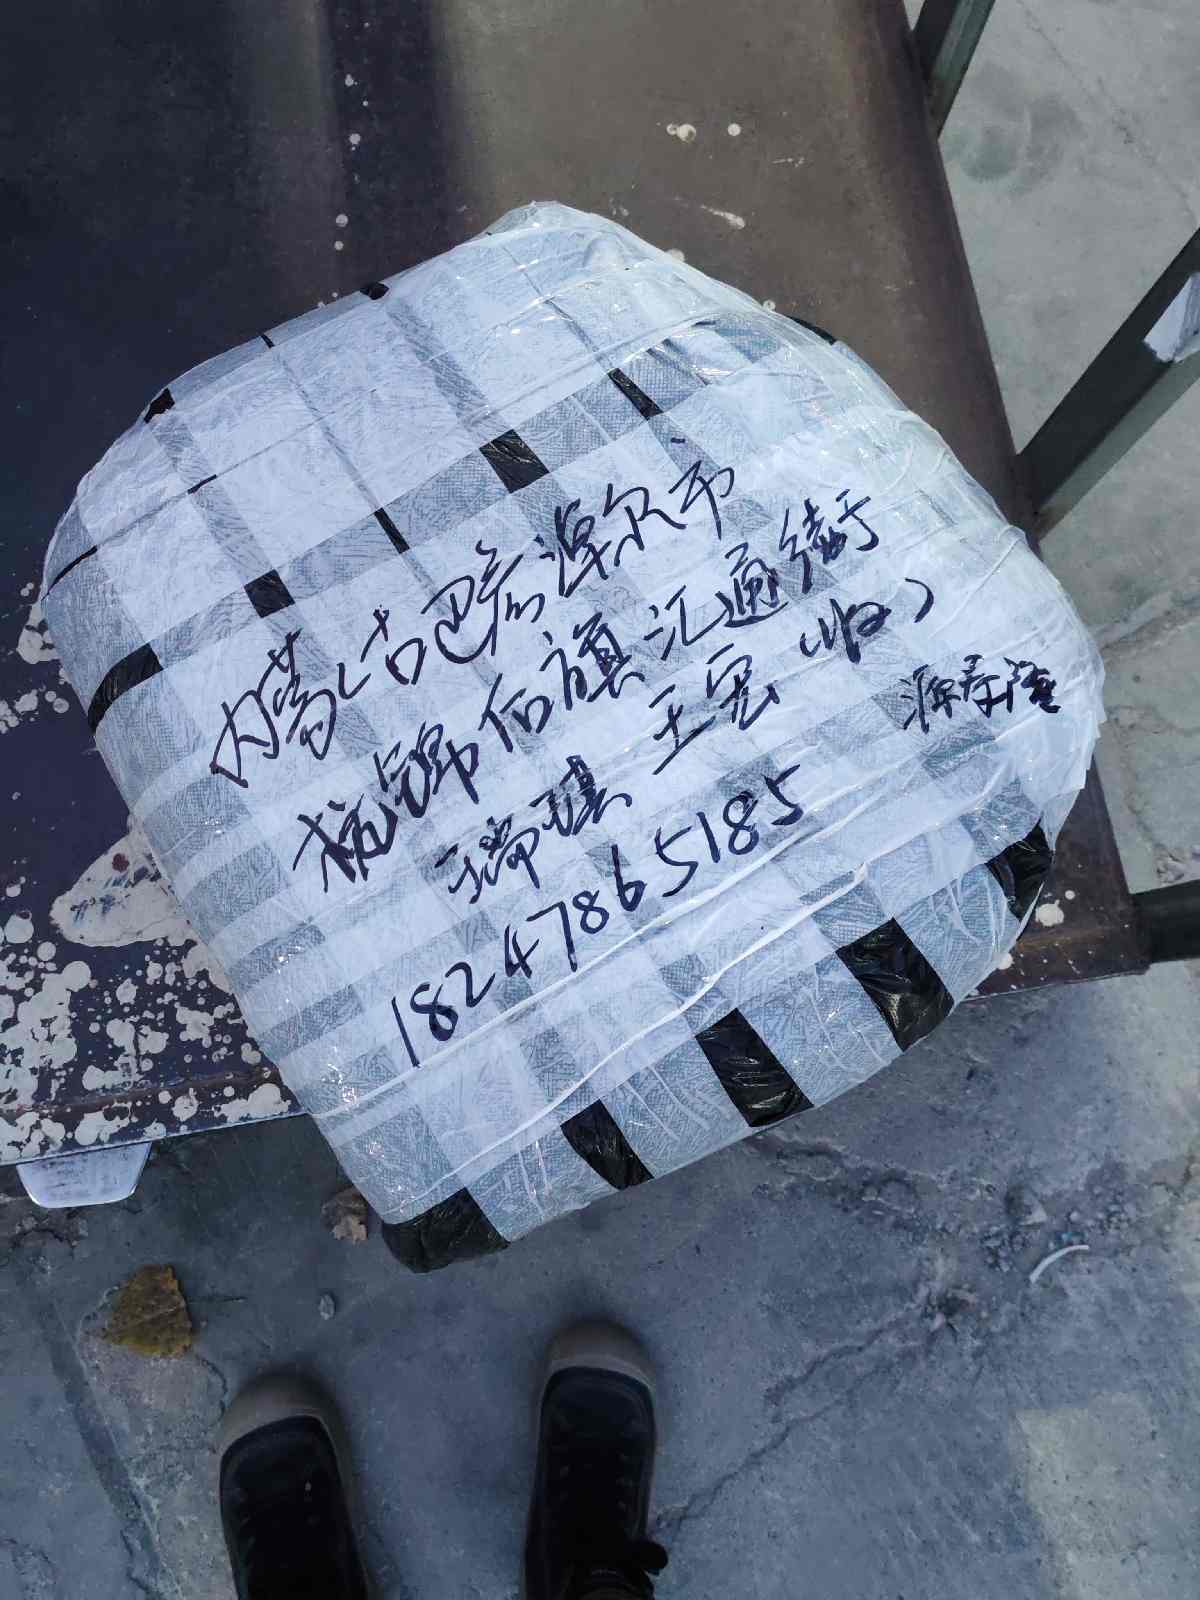 内蒙古巴彦淖尔市
杭锦后旗汇通街于
瑞琪 王宏(收)
源泰隆
18247865185